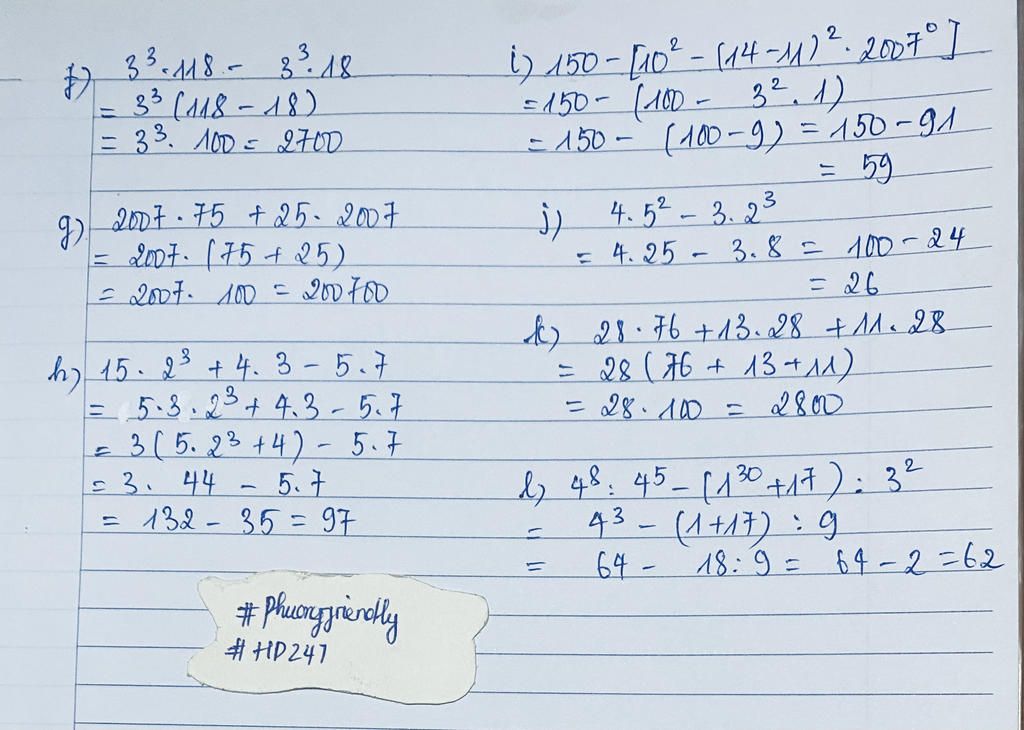 f) 3³.118 - 3³.18
= 3³ (118 - 18)
= 3³. 100 = 2700
g) 2007.75 + 25. 2007
= 2007. (75 + 25)
= 2007. 100 = 200700
h) 15. 2³ + 4. 3 - 5.7
= 5.3.2³ + 4.3 - 5.7
= 3(5.2³ + 4) - 5.7
= 3. 44 - 5.7
= 132 - 35 = 97
i) 150 - [10² - (14 - 11)². 2007⁰]
= 150 - (100 - 3². 1)
= 150 - (100 - 9) = 150 - 91
= 59
j) 4.5² - 3.2³
= 4.25 - 3.8 = 100 - 24
= 26
k) 28.76 + 13.28 + 11.28
= 28(76 + 13 + 11)
= 28.100 = 2800
l) 4⁸: 4⁵ - (1³⁰ + 17): 3²
= 4³ - (1 + 17) : 9
= 64 - 18:9 = 64 - 2 = 62
#Phuongfriendly
#HD247